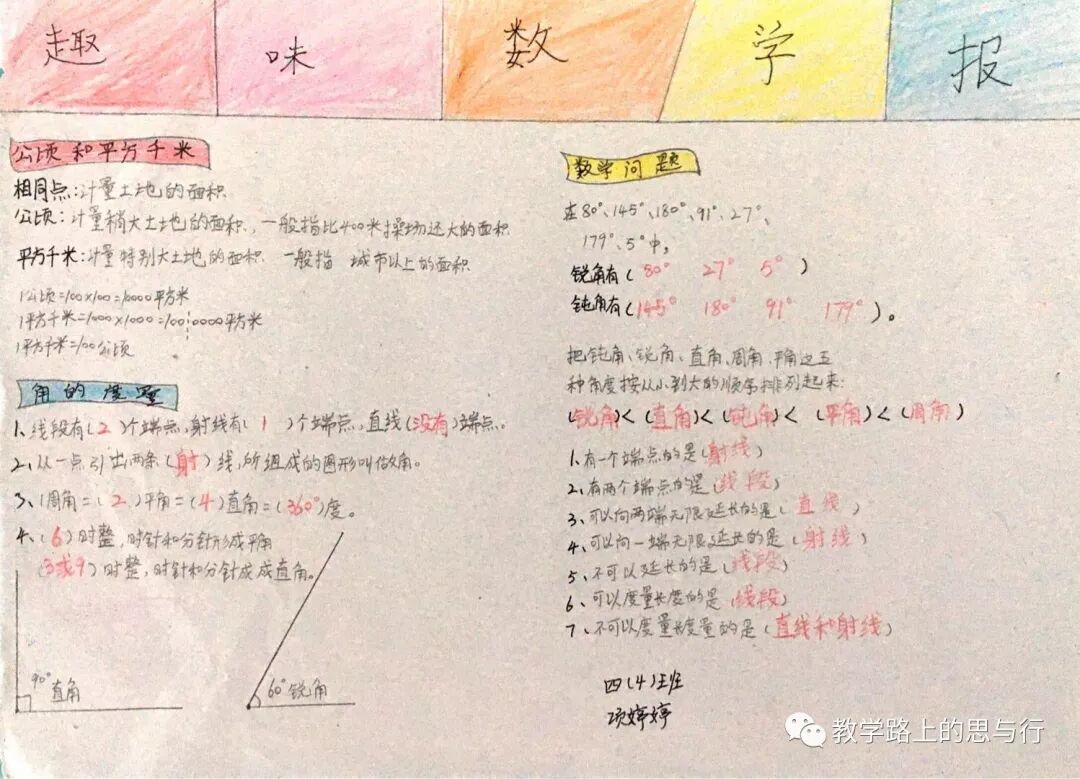 趣味数学报
公顷和平方千米
相同点:计量土地的面积
公顷:计量稍大土地的面积,一般指比400米操场还大的面积
平方千米:计量特别大土地的面积 一般指 城市以上的面积
1公顷=100×100=10000平方米
1平方千米=1000×1000=1000000平方米
1平方千米=100公顷
角的度量
1、线段有(2)个端点,射线有(1)个端点,直线(没有)端点。
2、从一点引出两条(射)线,所组成的图形叫做角。
3、1周角=(2)平角=(4)直角=(360°)度。
4、(6)时整,时针和分针形成平角
(3或9)时整,时针和分针成成直角。
90°直角
60°锐角
数学问题
在80°、145°、180°、91°、27°、
179°、5°中,
锐角有(80° 27° 5°)
钝角有(145° 180° 91° 179°)。
把钝角、锐角、直角、周角、平角这五
种角度按从小到大的顺序排列起来:
(锐角)<(直角)<(钝角)<(平角)<(周角)
1、有一个端点的是(射线)
2、有两个端点的是(线段)
3、可以向两端无限延长的是(直线)
4、可以向一端无限延长的是(射线)
5、不可以延长的是(线段)
6、可以度量长度的是(线段)
7、不可以度量长度量的是(直线和射线)
四(4)班
项婷婷
教学路上的思与行